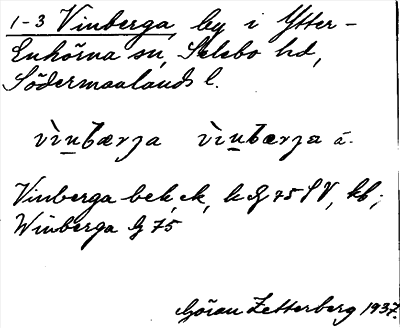 1-3 Vinberga, by i Ytter-
Enhörna sn, Selebo hd,
Södermanlands l.
vìnbærja vìnbærja ä.
Vinberga bek, ek, k G 75 SV, kb;
Winberga G 75
Göran Zetterberg 1937.